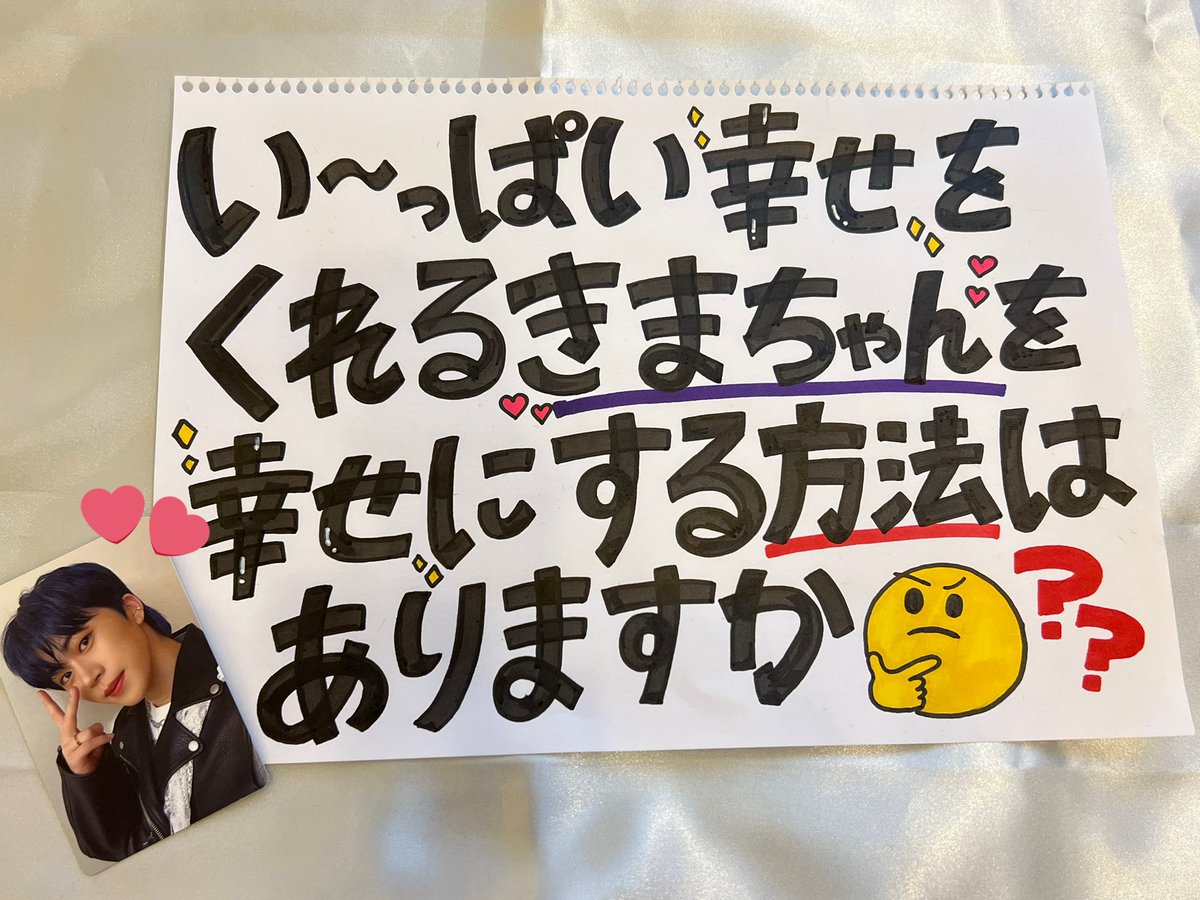 い〜っぱい幸せを
くれるきまちゃんを
幸せにする方法は
ありますか🤔??